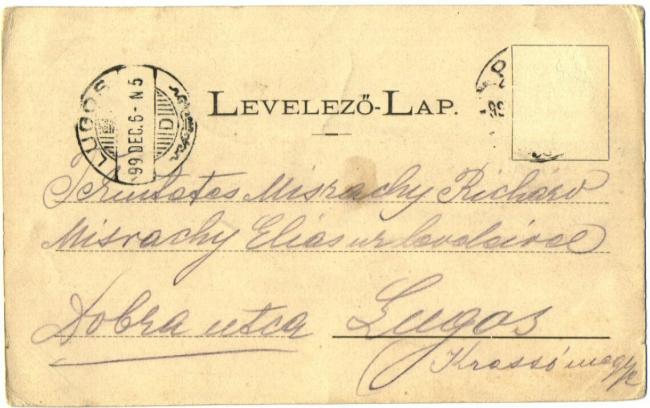 LUGOS
99 DEC. 6 - N 5
D
LEVELEZŐ-LAP.
Tekintetes Misrachy Richárd
Misrachy Eliás ur
Dobra utca Lugos
Krassómegye